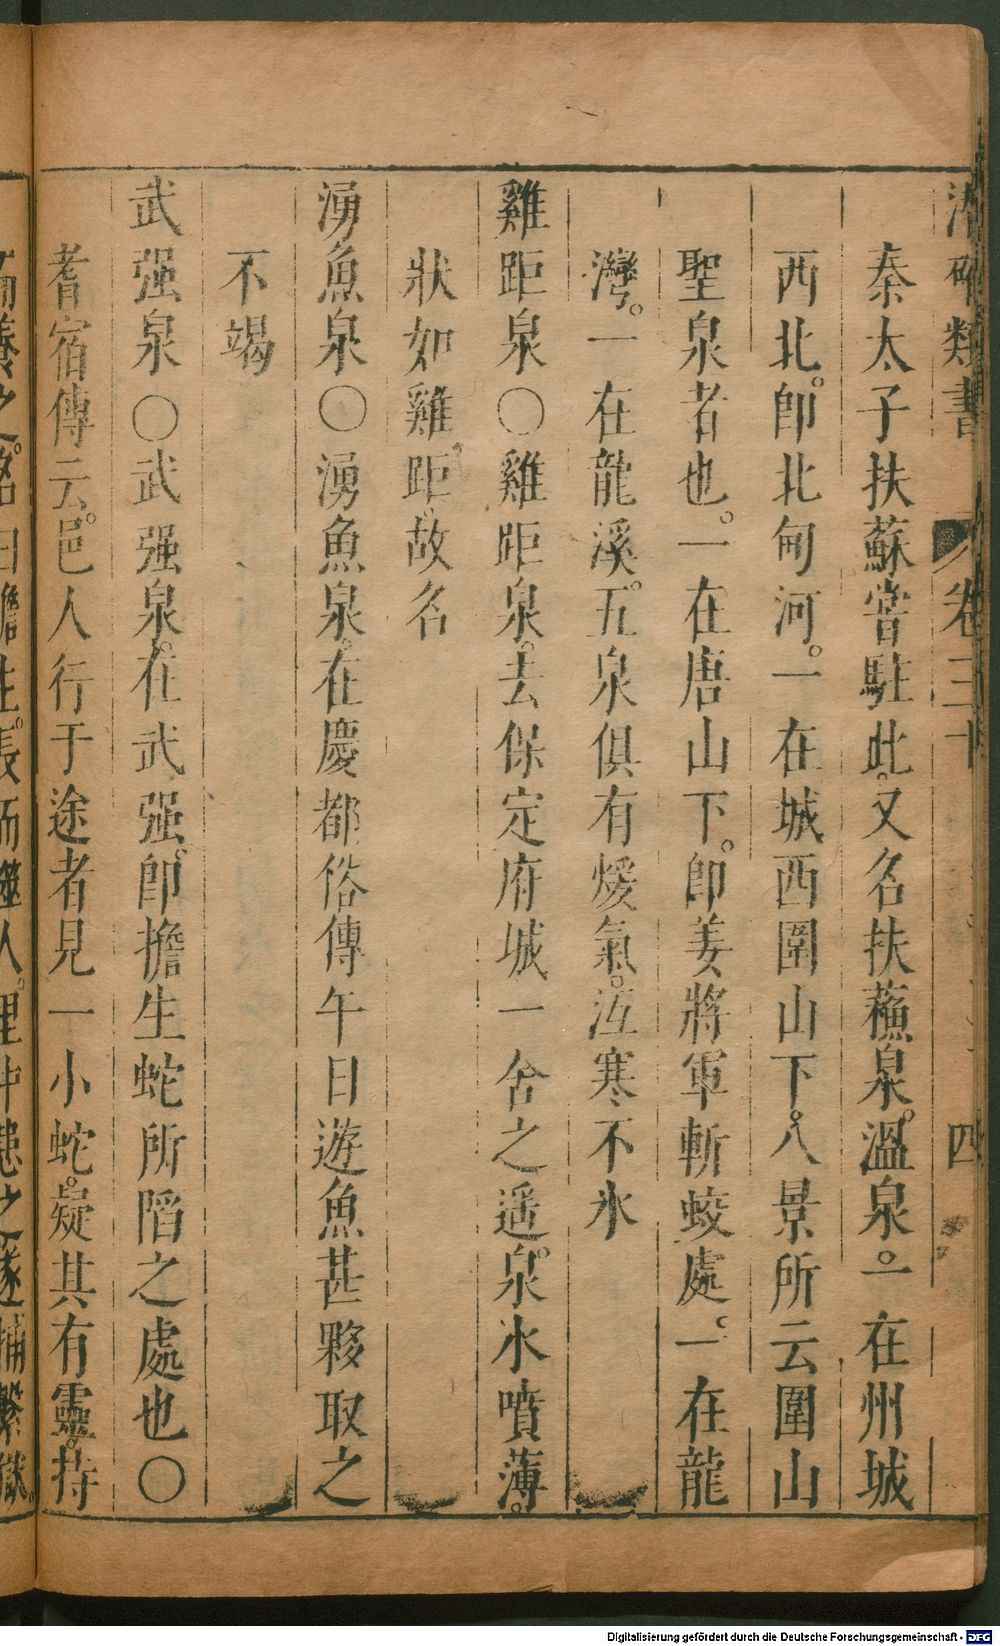 潛確類書 卷三十 四
秦太子扶蘇嘗駐此。又名扶蘓泉。溫泉。一在州城
西北。卽北甸河。一在城西圍山下。八景所云圍山
聖泉者也。一在唐山下。卽姜將軍斬蛟處。一在龍
灣。一在龍溪。五泉俱有煖氣。沍寒不氷
雞距泉〇雞距泉。去保定府城一舍之遥。泉水噴薄。
狀如雞距。故名
湧魚泉〇湧魚泉。在慶都俗傳午日遊魚甚夥取之
不竭
武强泉〇武强泉。在武强。卽擔生蛇所陷之處也〇
耆宿傳云。邑人行于途者見一小蛇。疑其有靈。持
而養之。名曰擔生。長而噬人。里中患之遂捕繫獄。
Digitalisierung gefördert durch die Deutsche Forschungsgemeinschaft - DFG